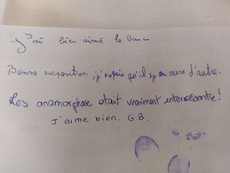 J'ai bien aimé le
Bonne exposition, j'espère qu'il y en aura d'autre.
Les anamorphose était vraiment interessante !
J'aime bien. G.B.